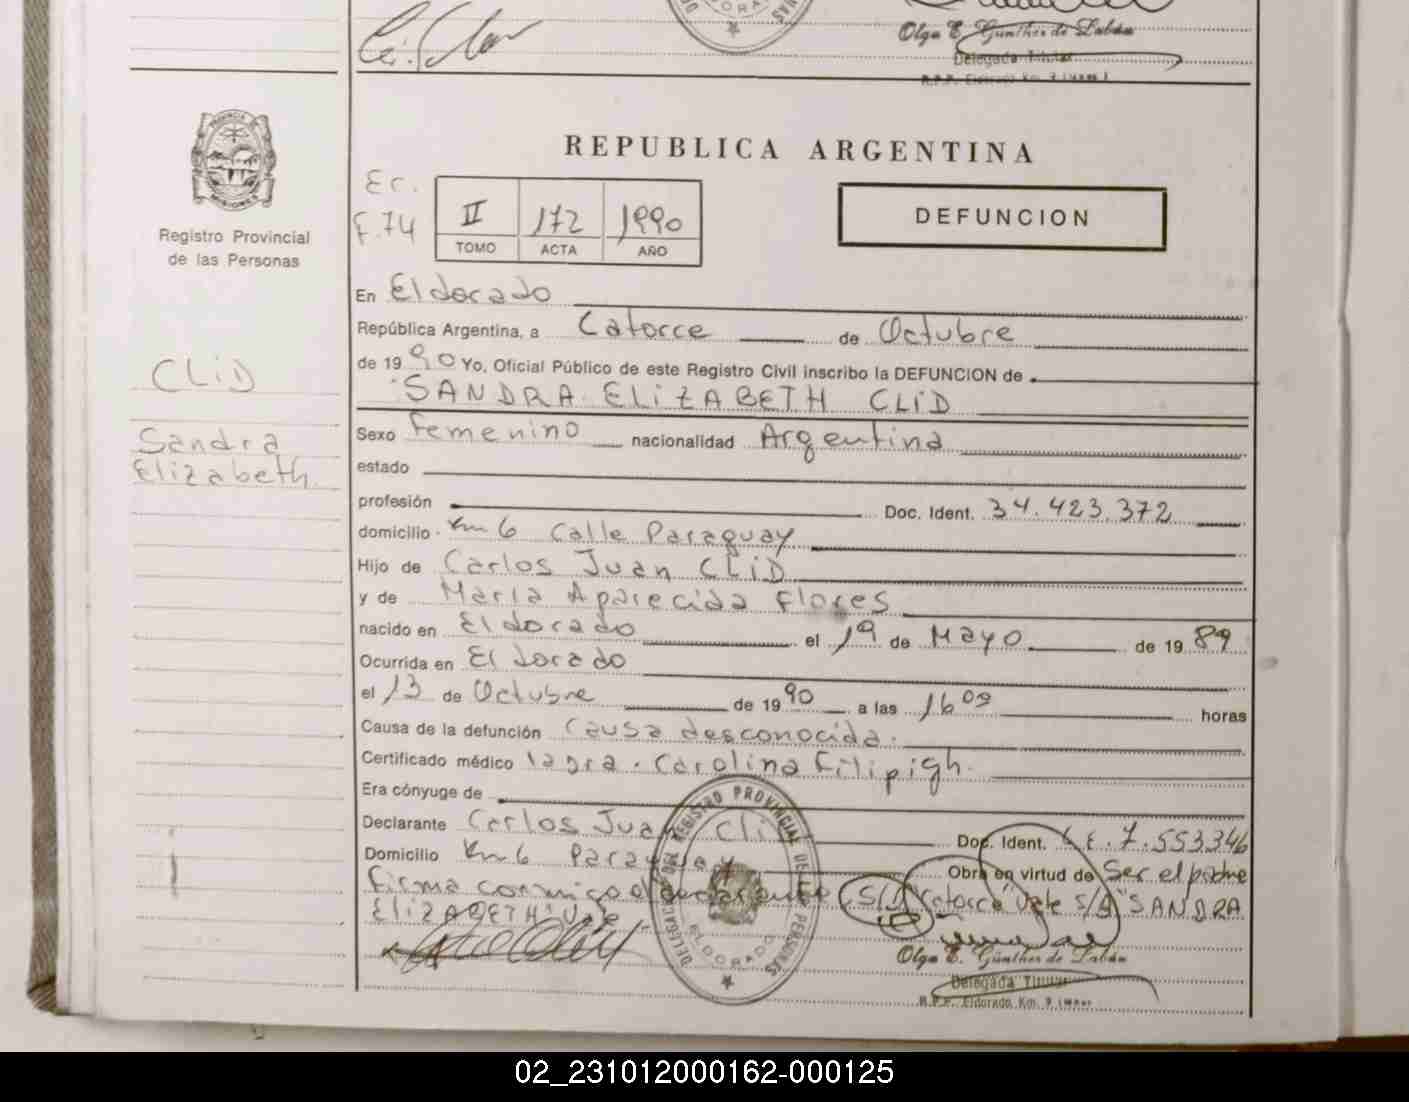 Olga E. Günther de Labán
Delegada Titular
R.P.P. Eldorado Km. 9 (Mnes)
REPUBLICA ARGENTINA
PROVINCIA
MISIONES
Registro Provincial
de las Personas
Er.
F. 74
II 172 1990
TOMO ACTA AÑO
DEFUNCION
En Eldorado
República Argentina, a Catorce de Octubre
de 1990 Yo, Oficial Público de este Registro Civil inscribo la DEFUNCION de
SANDRA ELIZABETH CLID
CLID
Sandra
Elizabeth
Sexo Femenino nacionalidad Argentina
estado
profesión Doc. Ident. 34.423.372
domicilio Km 6 Calle Paraguay
Hijo de Carlos Juan CLID
y de Maria Aparecida Flores
nacido en Eldorado el 19 de Mayo de 1989
Ocurrida en Eldorado
el 13 de Octubre de 1990 a las 16 09 horas
Causa de la defunción Causa desconocida.
Certificado médico la dra. Carolina Filipigh.
Era cónyuge de
Declarante Carlos Juan Clid Doc. Ident. L.E. 7.553.346
Domicilio Km 6 Paraguay Obra en virtud de Ser el padre
firma conmigo el declarante S/B "Catorce" Vale S/B "SANDRA
ELIZABETH" Vale
DELEGACION DEL REGISTRO PROVINCIAL DE LAS PERSONAS
ELDORADO
Olga E. Günther de Labán
Delegada Titular
R.P.P. Eldorado Km. 9 (Mnes)
02_231012000162-000125